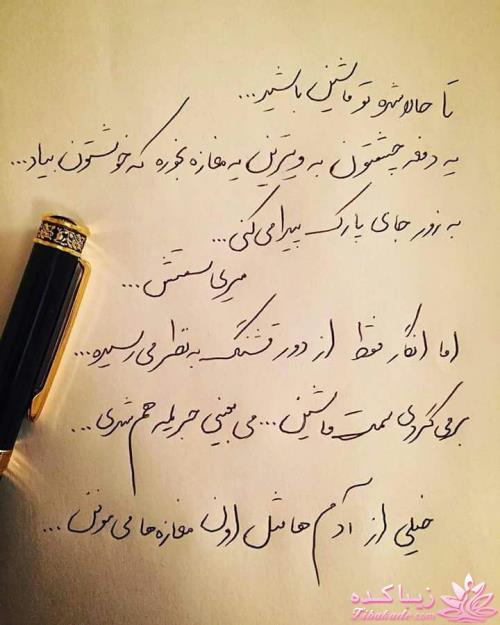 تا حالا شده تو ماشین باشید...
یه دفعه چشمتون به ویترین یه مغازه بخوره که خوشتون بیاد...
به زور جای پارک پیدا می کنی...
میری سمتش...
اما انگار فقط از دور قشنگ به نظر می رسیده...
برمی گردی سمت ماشین... می بینی جریمه هم شدی...
خیلی از آدم ها مثل اون مغازه ها می مونن...
زیباکده
Zibakade.com